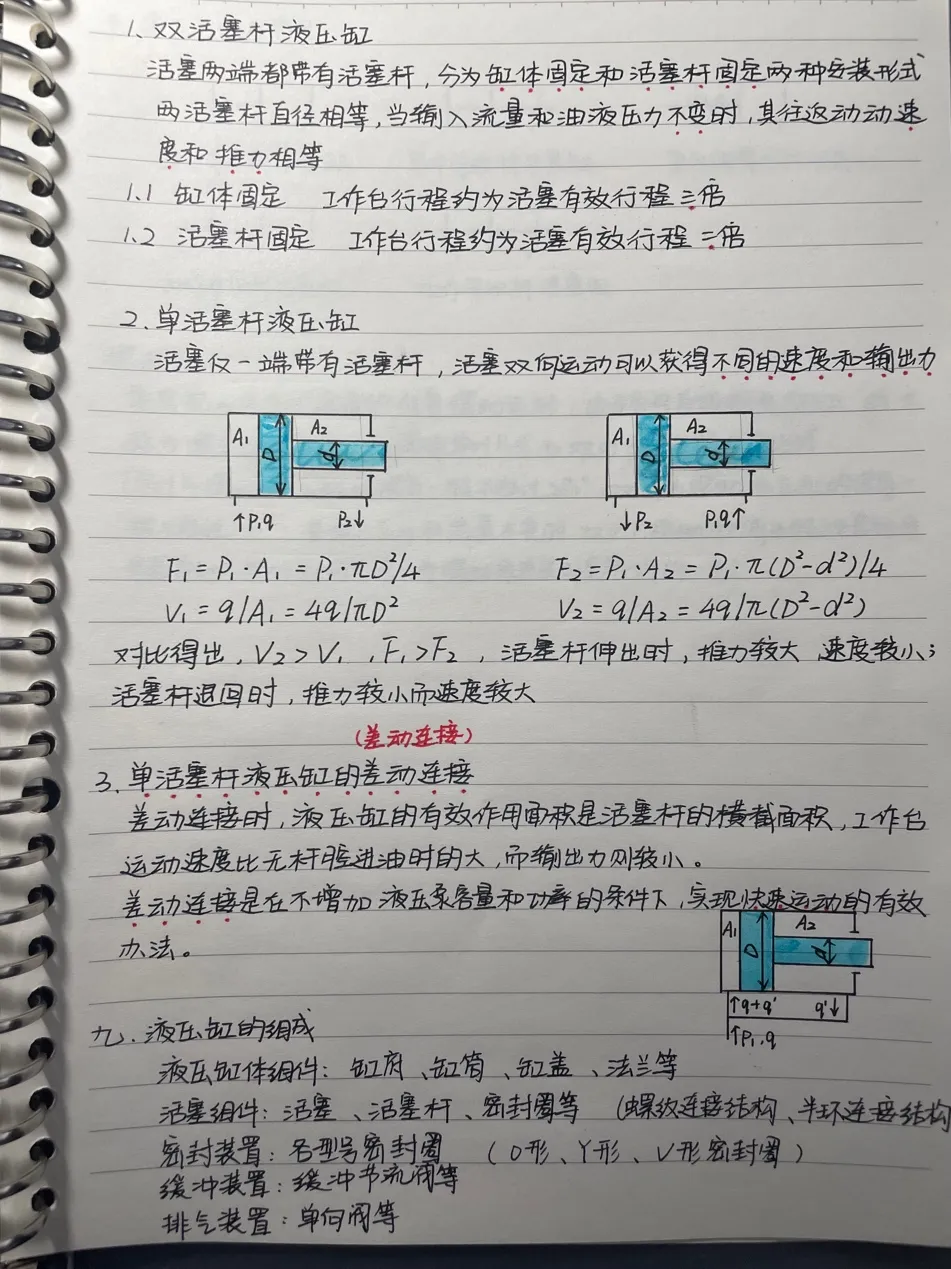 1、双活塞杆液压缸
活塞两端都带有活塞杆，分为缸体固定和活塞杆固定两种安装形式
两活塞杆直径相等，当输入流量和油液压力不变时，其往返动动速
度和推力相等
1.1 缸体固定 工作台行程约为活塞有效行程三倍
1.2 活塞杆固定 工作台行程约为活塞有效行程二倍
2、单活塞杆液压缸
活塞仅一端带有活塞杆，活塞双向运动可以获得不同的速度和输出力
A₁ D A₂ d
A₁ D A₂ d
↑P₁q P₂↓
↓P₂ P₁q↑
F₁=P₁·A₁=P₁·πD²/4
F₂=P₁·A₂=P₁·π(D²-d²)/4
V₁=q/A₁=4q/πD²
V₂=q/A₂=4q/π(D²-d²)
对比得出，V₂>V₁，F₁>F₂，活塞杆伸出时，推力较大 速度较小；
活塞杆退回时，推力较小而速度较大
(差动连接)
3、单活塞杆液压缸的差动连接
差动连接时，液压缸的有效作用面积是活塞杆的横截面积，工作台
运动速度比无杆腔进油时的大，而输出力则较小。
差动连接是在不增加液压泵容量和功率的条件下，实现快速运动的有效
办法。
A₁ D A₂ d
↑q+q' q'↓
↑P₁.q
九、液压缸的组成
液压缸体组件：缸底、缸筒、缸盖、法兰等
活塞组件：活塞、活塞杆、密封圈等 (螺纹连接结构、半环连接结构
密封装置：各型号密封圈 (O形、Y形、V形密封圈)
缓冲装置：缓冲节流阀等
排气装置：单向阀等